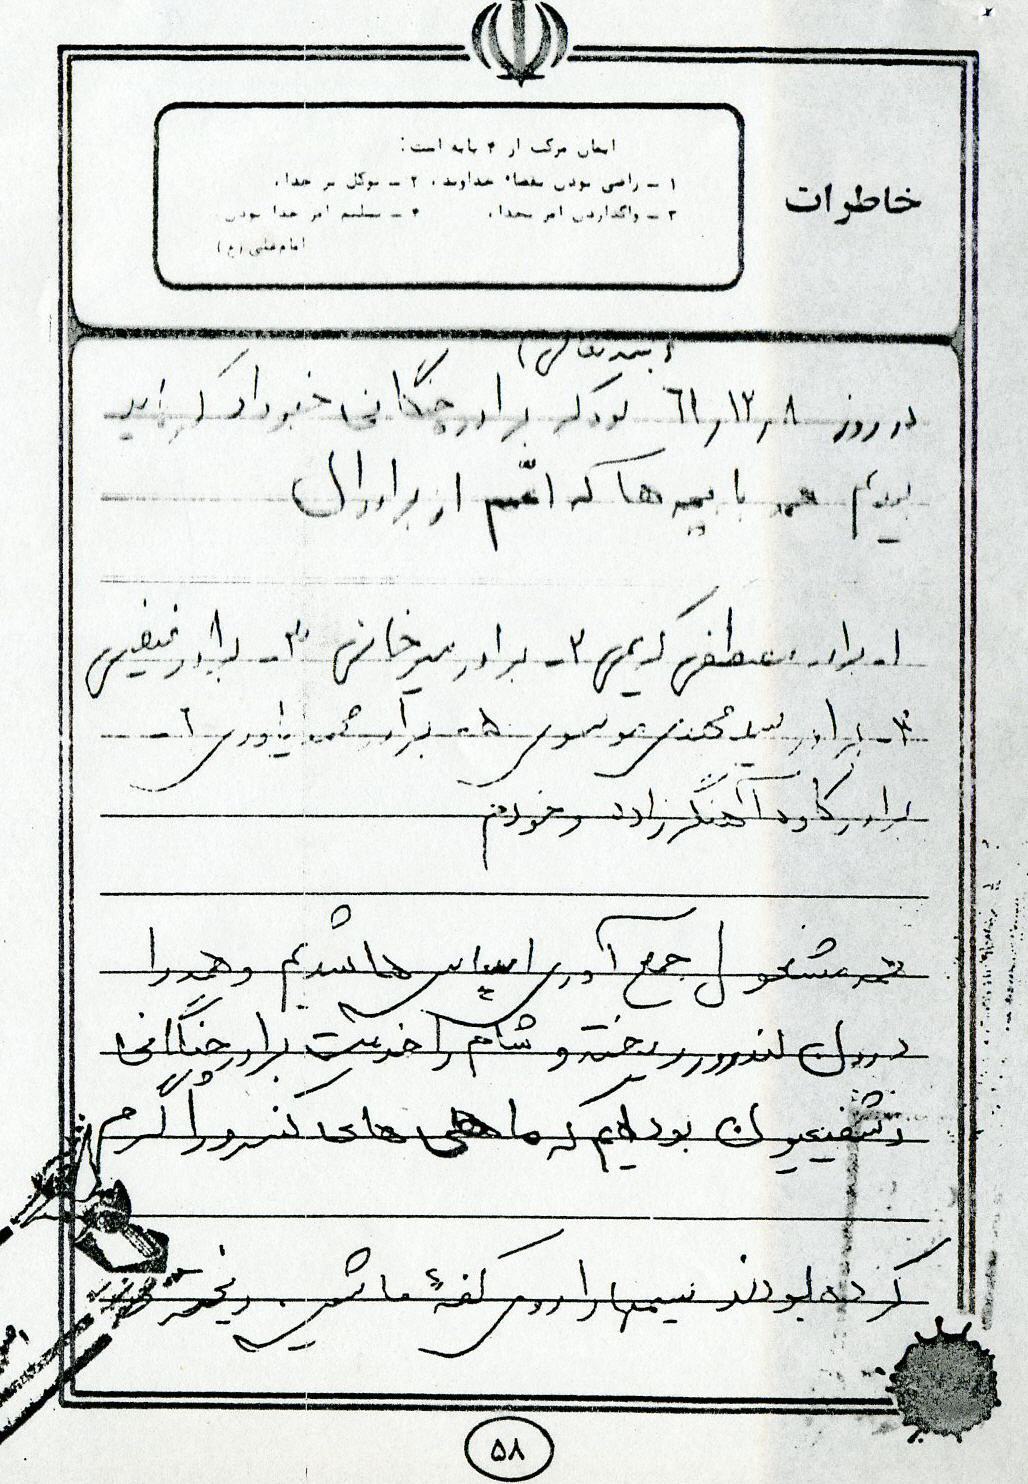 خاطرات
ایمان مرکب از ۴ پایه است:
۱ ـ راضی بودن بقضاء خداوند، ۲ ـ توکل بر خدا،
۳ ـ واگذاردن امر بخدا، ۴ ـ تسلیم امر خدا بودن
امام‌علی (ع)
(بسمه تعالی)
در روز ۸ ر ۱۲ ر ۶۱ بود که برادر چنگانی خبر داد که
همه با بچه ها که اعم از برادران
۱ـ برادر مصطفی کریمی ۲ـ برادر میرخانی ۳ـ برادر
۴ـ برادر سید مجتبی موسوی ۵ـ برادر محمد یاوری ۶ـ
برادر کاوه آهنگرزاده و خودم
همه مشغول جمع آوری اسباس ها شدیم و همه را
درون لندرور ریخته و شام را خدمت برادر چنگانی
و شفیعیون بودیم که ماهی های کنسرو را گرم
کرده بودند سیمها را روی کفهٔ ماشین ریخته
۵۸